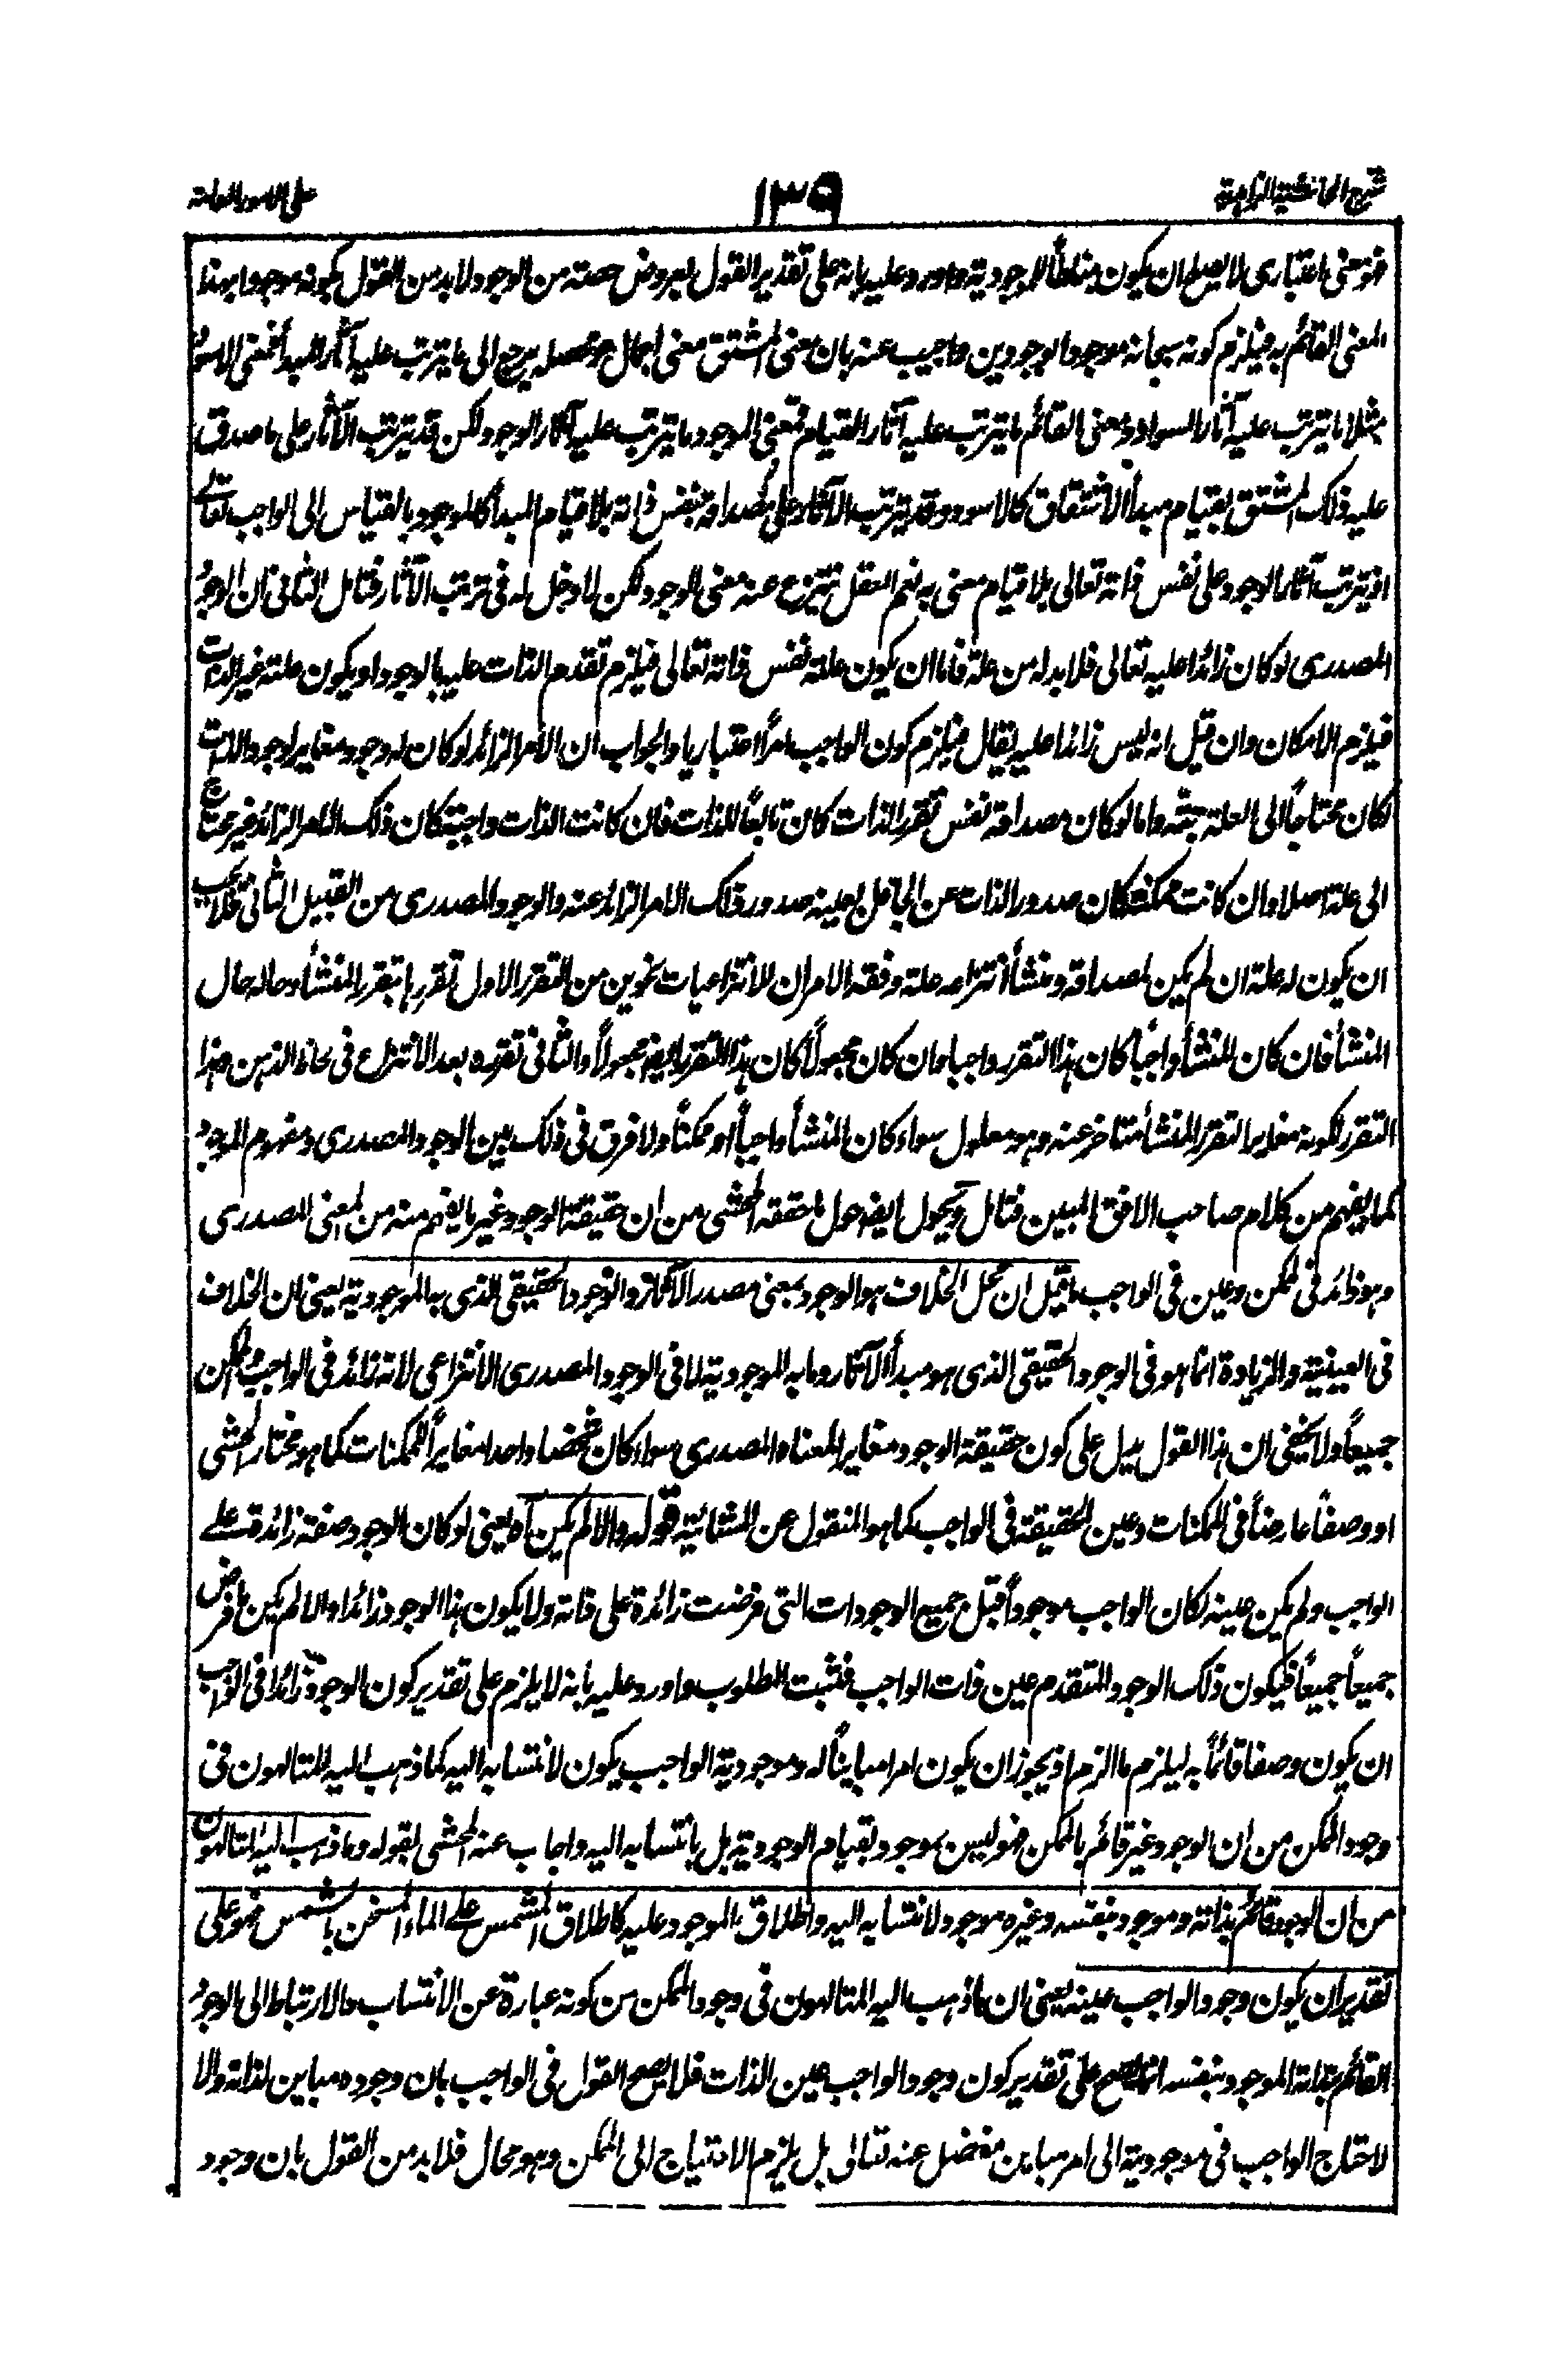 شرح الحاشية الزاهدية
١٣٩
على الامور العامة
فهو معنى اعتبارى لا يصلح ان يكون مناطا للموجودية واورد عليه بانه على تقدير القول بعروض حصته من الوجود لا بد من القول بكونه موجودا بهذا
المعنى القائم به فيلزم كونه سبحانه موجودا بوجودين واجيب عنه بان معنى المشتق معنى اجمالى محصله يرجع الى ما يترتب عليه آثار المبدأ فمعنى الاسود
مثلا ما يترتب عليه آثار السواد ومعنى القائم ما يترتب عليه آثار القيام فمعنى الموجود ما يترتب عليه آثار الوجود لكن قد يترتب الآثار على ما صدق
عليه ذلك المشتق بقيام مبدأ الاشتقاق كالاسود وقد يترتب الآثار على مصداقه بنفس ذاته بلا قيام المبدأ كالموجود بالقياس الى الواجب تعالى
اذ يترتب آثار الوجود على نفس ذاته تعالى بلا قيام معنى به نعم العقل ينتزع عنه معنى الوجود لكن لا دخل له فى ترتب الآثار فتامل الثانى ان الوجود
المصدرى لو كان زائدا عليه تعالى فلا بد له من علة فاما ان يكون علته نفس ذاته تعالى فيلزم تقدم الذات عليه بالوجود او يكون علته غير الذات
فيلزم الامكان وان قيل انه ليس زائدا عليه يقال فيلزم كون الواجب امرا اعتباريا والجواب ان الامر الزائد لو كان له وجود مغاير لوجود الذات
لكان محتاجاً الى العلة حقه واما لو كان مصداقه نفس تقرر الذات كان تابعا للذات فان كانت الذات واجبة كان ذلك الامر الزائد غير محتاج
الى علة اصلا وان كانت ممكنة كان صدور الذات عن الجاعل بعينه صدور ذلك الامر الزائد عنه والوجود المصدرى من القبيل الثانى فلا يجب
ان يكون له علة ان لم يكن لمصداقه ومنشأ انتزاعه علة وفقه الامر ان للانتزاعيات نحوين من التقرر الاول تقررها بتقرر المنشأ وحاله حال
المنشأ فان كان المنشأ واجبا كان هذا التقرر واجبا وان كان مجعولا كان هذا التقرر ايضا مجعولا والثانى تقرره بعد الانتزاع فى لحاظ الذهن وهذا
التقرر لكونه مغايرا لتقرر المنشأ متاخر عنه وهو معلول سواء كان المنشأ واجبا او ممكنا ولا فرق فى ذلك بين الوجود المصدرى ومفهوم الموجود
كما يفهم من كلام صاحب الافق المبين فتامل ويحول ايضا حول ما حققه المحشى من ان حقيقة الوجود غير ما يفهم منه من المعنى المصدرى
وهو زائد فى الممكن وعين فى الواجب ما قيل ان محل الخلاف هو الوجود بمعنى مصدر الآثار والوجود الحقيقى الذى به الموجودية يعنى ان الخلاف
فى العينية والزيادة انما هو فى الوجود الحقيقى الذى هو مبدأ الآثار وما به الموجودية لا فى الوجود المصدرى الانتزاعى لانه زائد فى الواجب والممكن
جميعاً ولا يخفى ان هذا القول يدل على كون حقيقة الوجود مغايرا لمعناه المصدرى سواء كان شخصا واحدا مغايراً للممكنات كما هو مختار المحشى
او وصفاً عارضاً فى الممكنات وعين الحقيقة فى الواجب كما هو المنقول عن المشائية قوله والا لم يكن آه يعنى لو كان الوجود صفة زائدة على
الواجب ولم يكن عينه لكان الواجب موجوداً قبل جميع الوجودات التى فرضت زائدة على ذاته ولا يكون هذا الوجود زائدا والا لم يكن ما فرض
جميعاً جميعاً فيكون ذلك الوجود المتقدم عين ذات الواجب فثبت المطلوب واورد عليه بانه لا يلزم على تقدير كون الوجود زائدا فى الواجب
ان يكون وصفا قائماً به ليلزم ما الزم اذ يجوز ان يكون امرا مبايناً له وموجودية الواجب يكون لانتسابه اليه كما ذهب اليه المتالهون فى
وجود الممكن من ان الوجود غير قائم بالممكن فهو ليس بموجود بقيام الوجود به بل بانتسابه اليه واجاب عنه المحشى بقوله وما ذهب اليه المتالهون
من ان الوجود قائم بذاته وموجود بنفسه وغيره موجود لانتسابه اليه واطلاق الموجود عليه كاطلاق المشمس على الماء المسخن بالشمس فهو على
تقدير ان يكون وجود الواجب عينه يعنى ان ما ذهب اليه المتالهون فى وجود الممكن من كونه عبارة عن الانتساب والارتباط الى الوجود
القائم بذاته الموجود بنفسه انما يصح على تقدير كون وجود الواجب عين الذات فلا يصح القول فى الواجب بان وجوده مباين لذاته والا
لاحتاج الواجب فى موجوديته الى امر مباين منفصل عنه تعالى بل يلزم الاحتياج الى الممكن وهو محال فلا بد من القول بان وجود